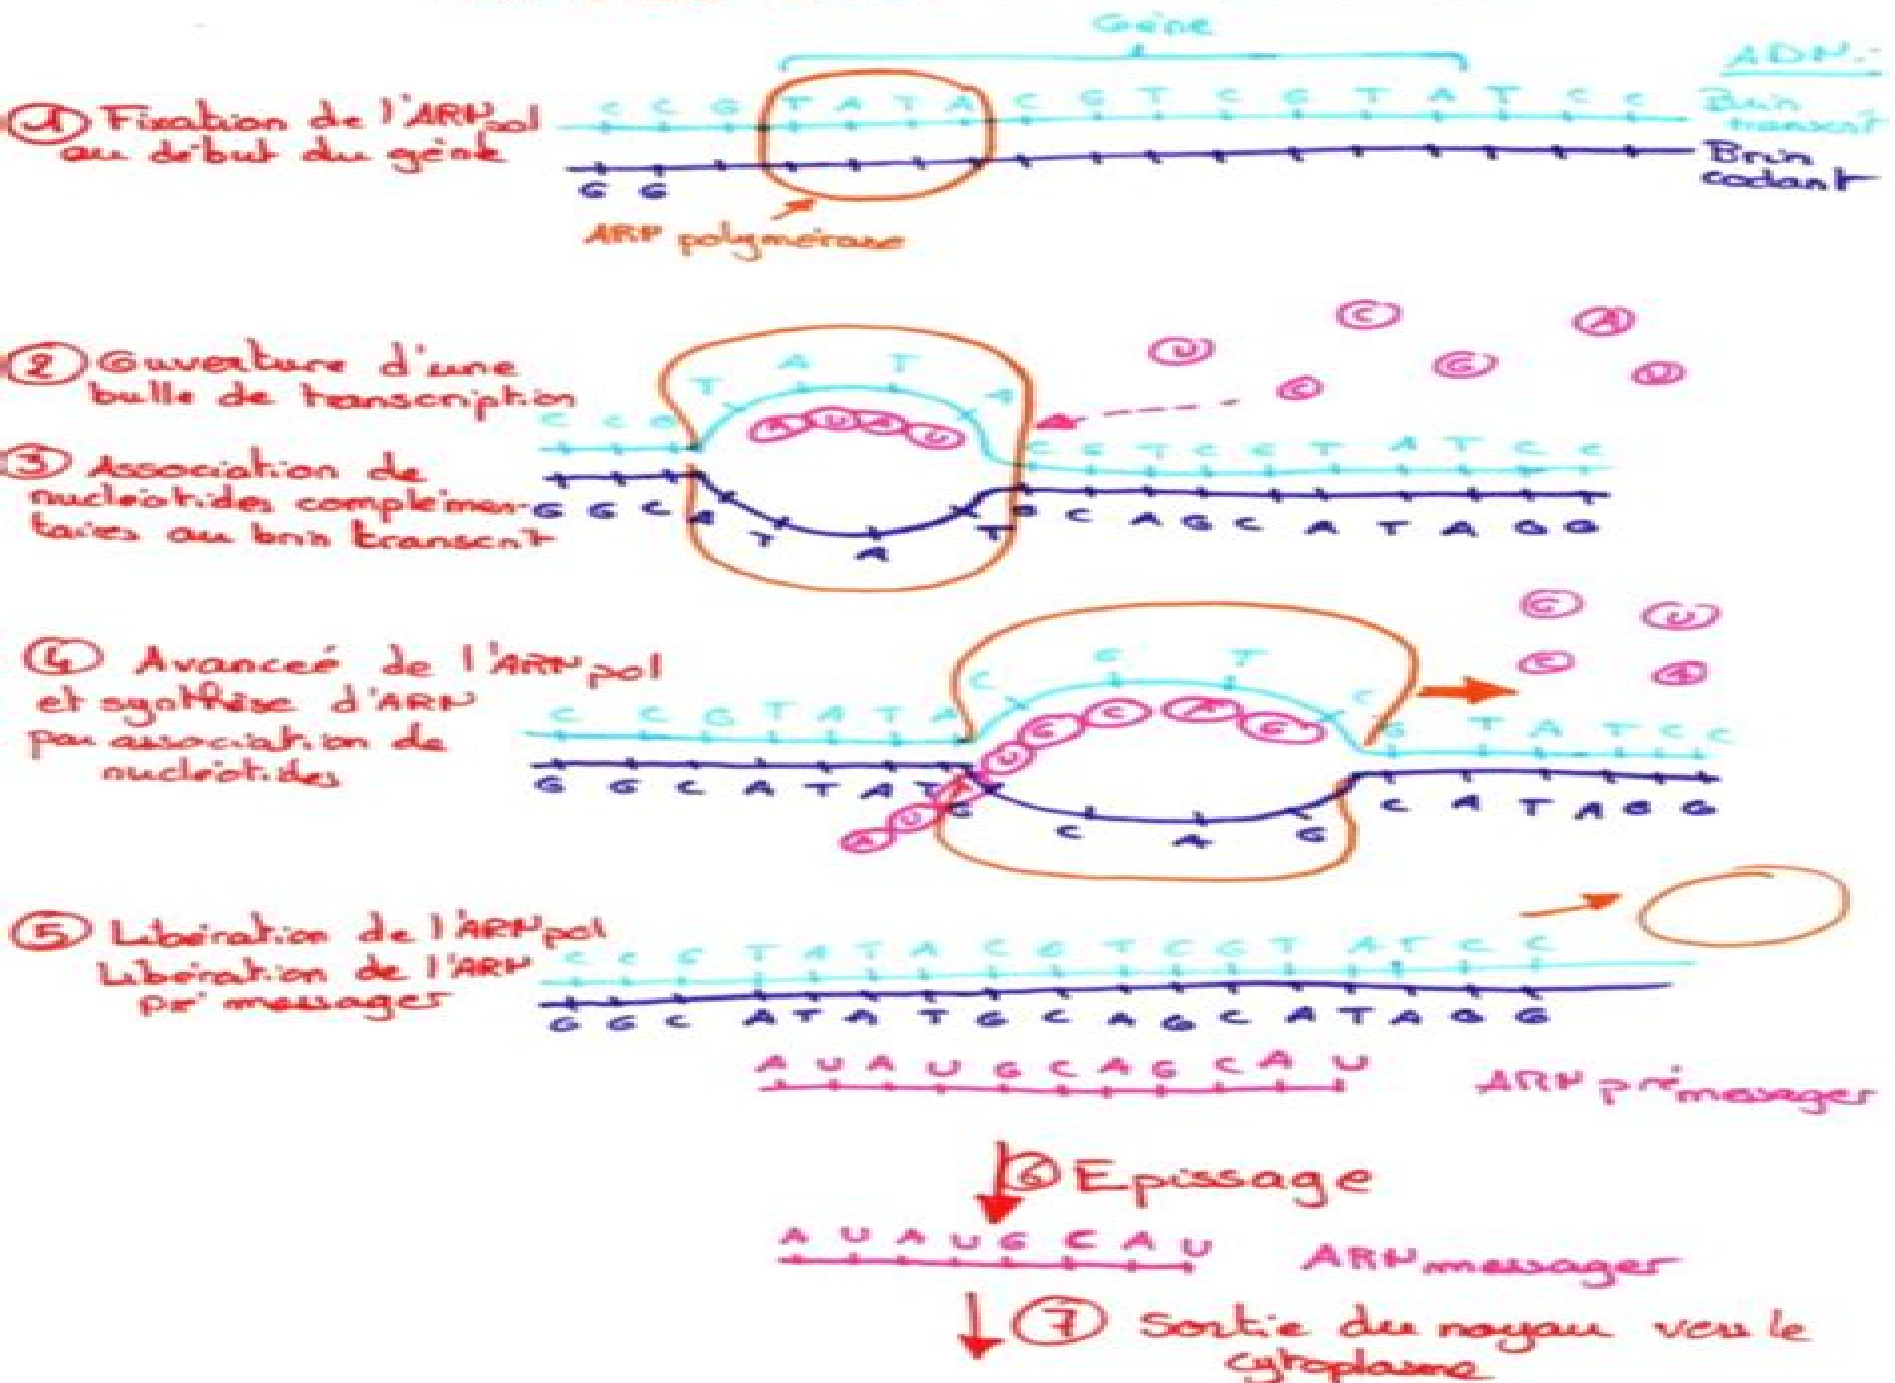 Gène
ADN:
① Fixation de l'ARNpol
au début du gène
C C G T A T A C G T C G T A T C C
Brin
transcrit
G G
Brin
codant
ARN polymérase
② Ouverture d'une
bulle de transcription
C A G
U C U
T A T A
C C G
A U A U
C G T C G T A T C C
③ Association de
nucléotides complémen-
taires au brin transcrit
G G C A T A T G C A G C A T A G G
④ Avanceé de l'ARNpol
et synthèse d'ARN
par association de
nucléotides
G U
C A
C G T C
C C G T A T A
G T A T C C
A U A U G C A G
G G C A T A T G C A G
C A T A G G
⑤ Libération de l'ARNpol
Libération de l'ARN
pré messager
C C G T A T A C G T C G T A T C C
G G C A T A T G C A G C A T A G G
A U A U G C A G C A U
ARN pré messager
⑥ Epissage
A U A U G C A U
ARN messager
⑦ Sortie du noyau vers le
cytoplasme